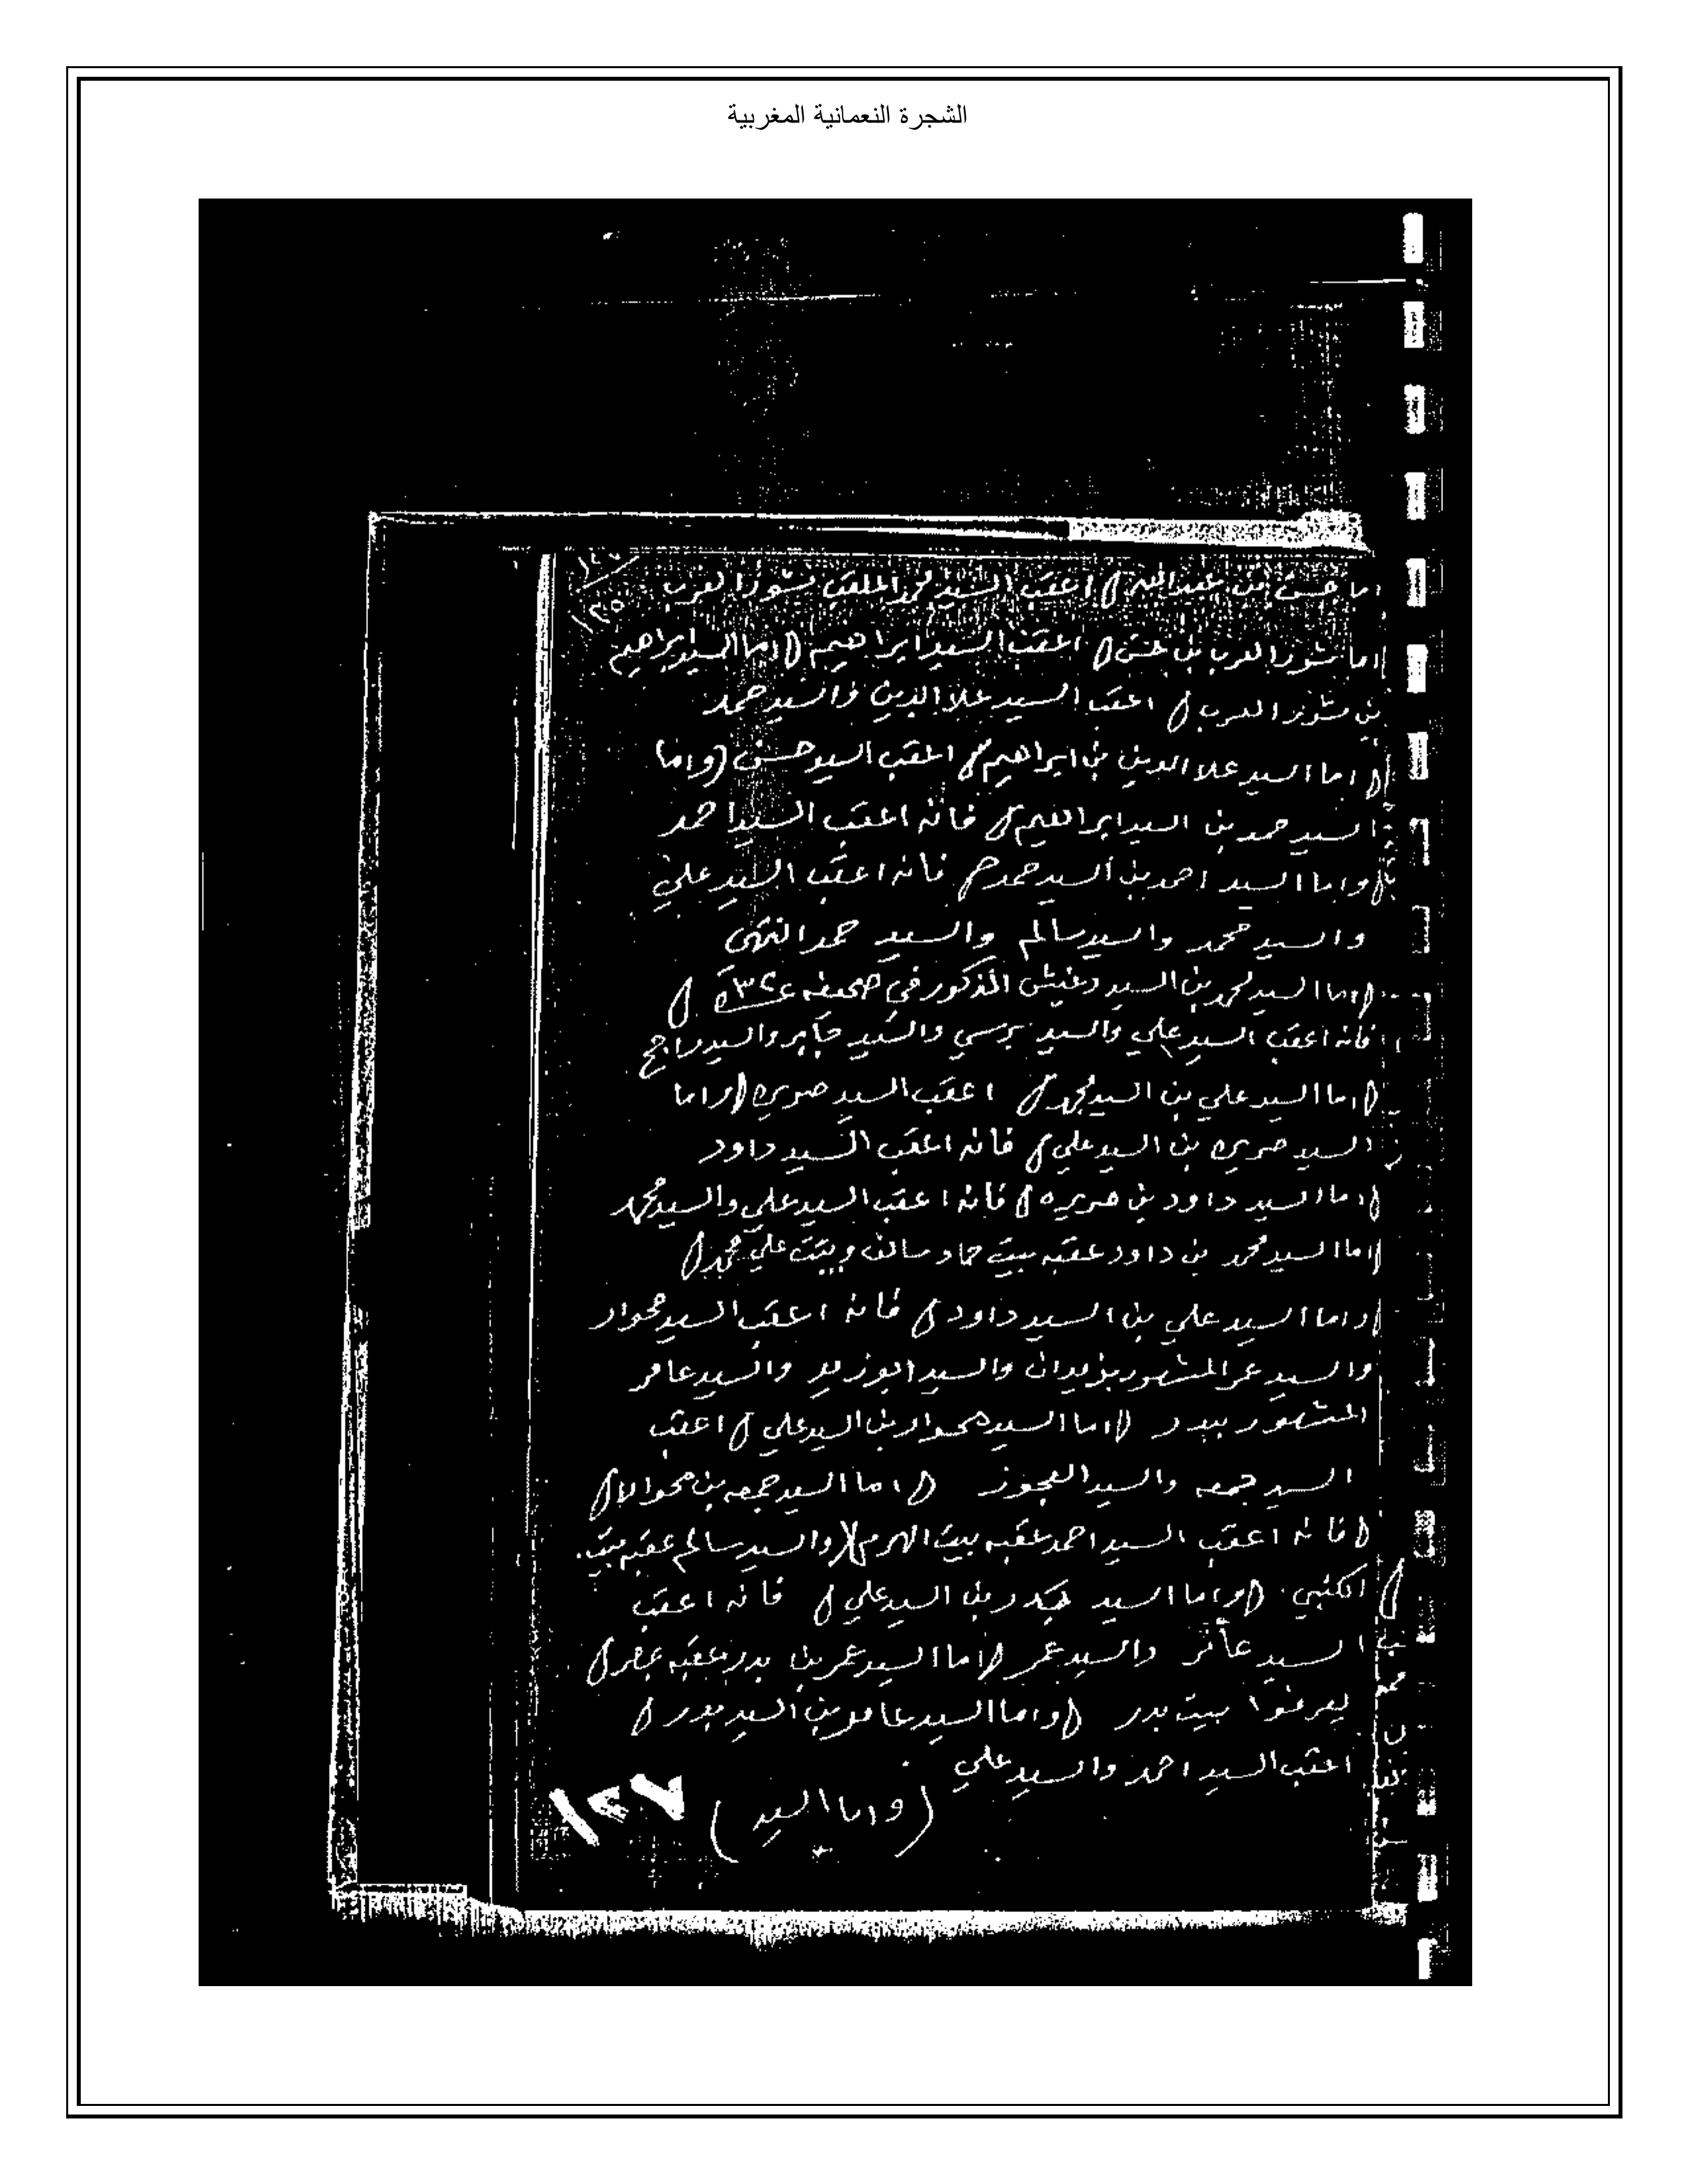 الشجرة النعمانية المغربية
اما حسن بن عبدالله) اعقب السيد محمد الملقب بشور العرب
اما شور العرب بن حسن) اعقب السيد ابراهيم (اما السيد ابراهيم
بن شور العرب) اعقب السيد علا الدين والسيد حمد
(اما السيد علا الدين بن ابراهيم) اعقب السيد حسن (واما
السيد حمد بن السيد ابراهيم) فانه اعقب السيد احمد
(واما السيد احمد بن السيد حمد) فانه اعقب السيد علي
والسيد محمد والسيد سالم والسيد حمد انتهى
(اما السيد محمد بن السيد دغيش المذكور في صحيفه
فانه اعقب السيد علي والسيد برسي والسيد جابر والسيد راجح
(اما السيد علي بن السيد محمد) اعقب السيد صويره (واما
السيد صويره بن السيد علي) فانه اعقب السيد داود
(اما السيد داود بن صويره) فانه اعقب السيد علي والسيد محمد
(اما السيد محمد بن داود عقبه بيت حماد سالف وبيت علي محمد)
(واما السيد علي بن السيد داود) فانه اعقب السيد محوار
والسيد عمر المشهور بزيدان والسيد ابوزيد والسيد عامر
المشهور ببدر (اما السيد محوار بن السيد علي) اعقب
السيد جمعه والسيد العجوز (اما السيد جمعه بن محوار)
(فانه اعقب السيد احمد عقبه بيت الهرم (والسيد سالم عقبه بيت
الكتبي (واما السيد بدر بن السيد علي) فانه اعقب
السيد عامر والسيد عمر (اما السيد عمر بن بدر عقبه
ليعرفوا بيت بدر (واما السيد عامر بن السيد بدر)
اعقب السيد احمد والسيد علي
(واما السيد)
١٢٧